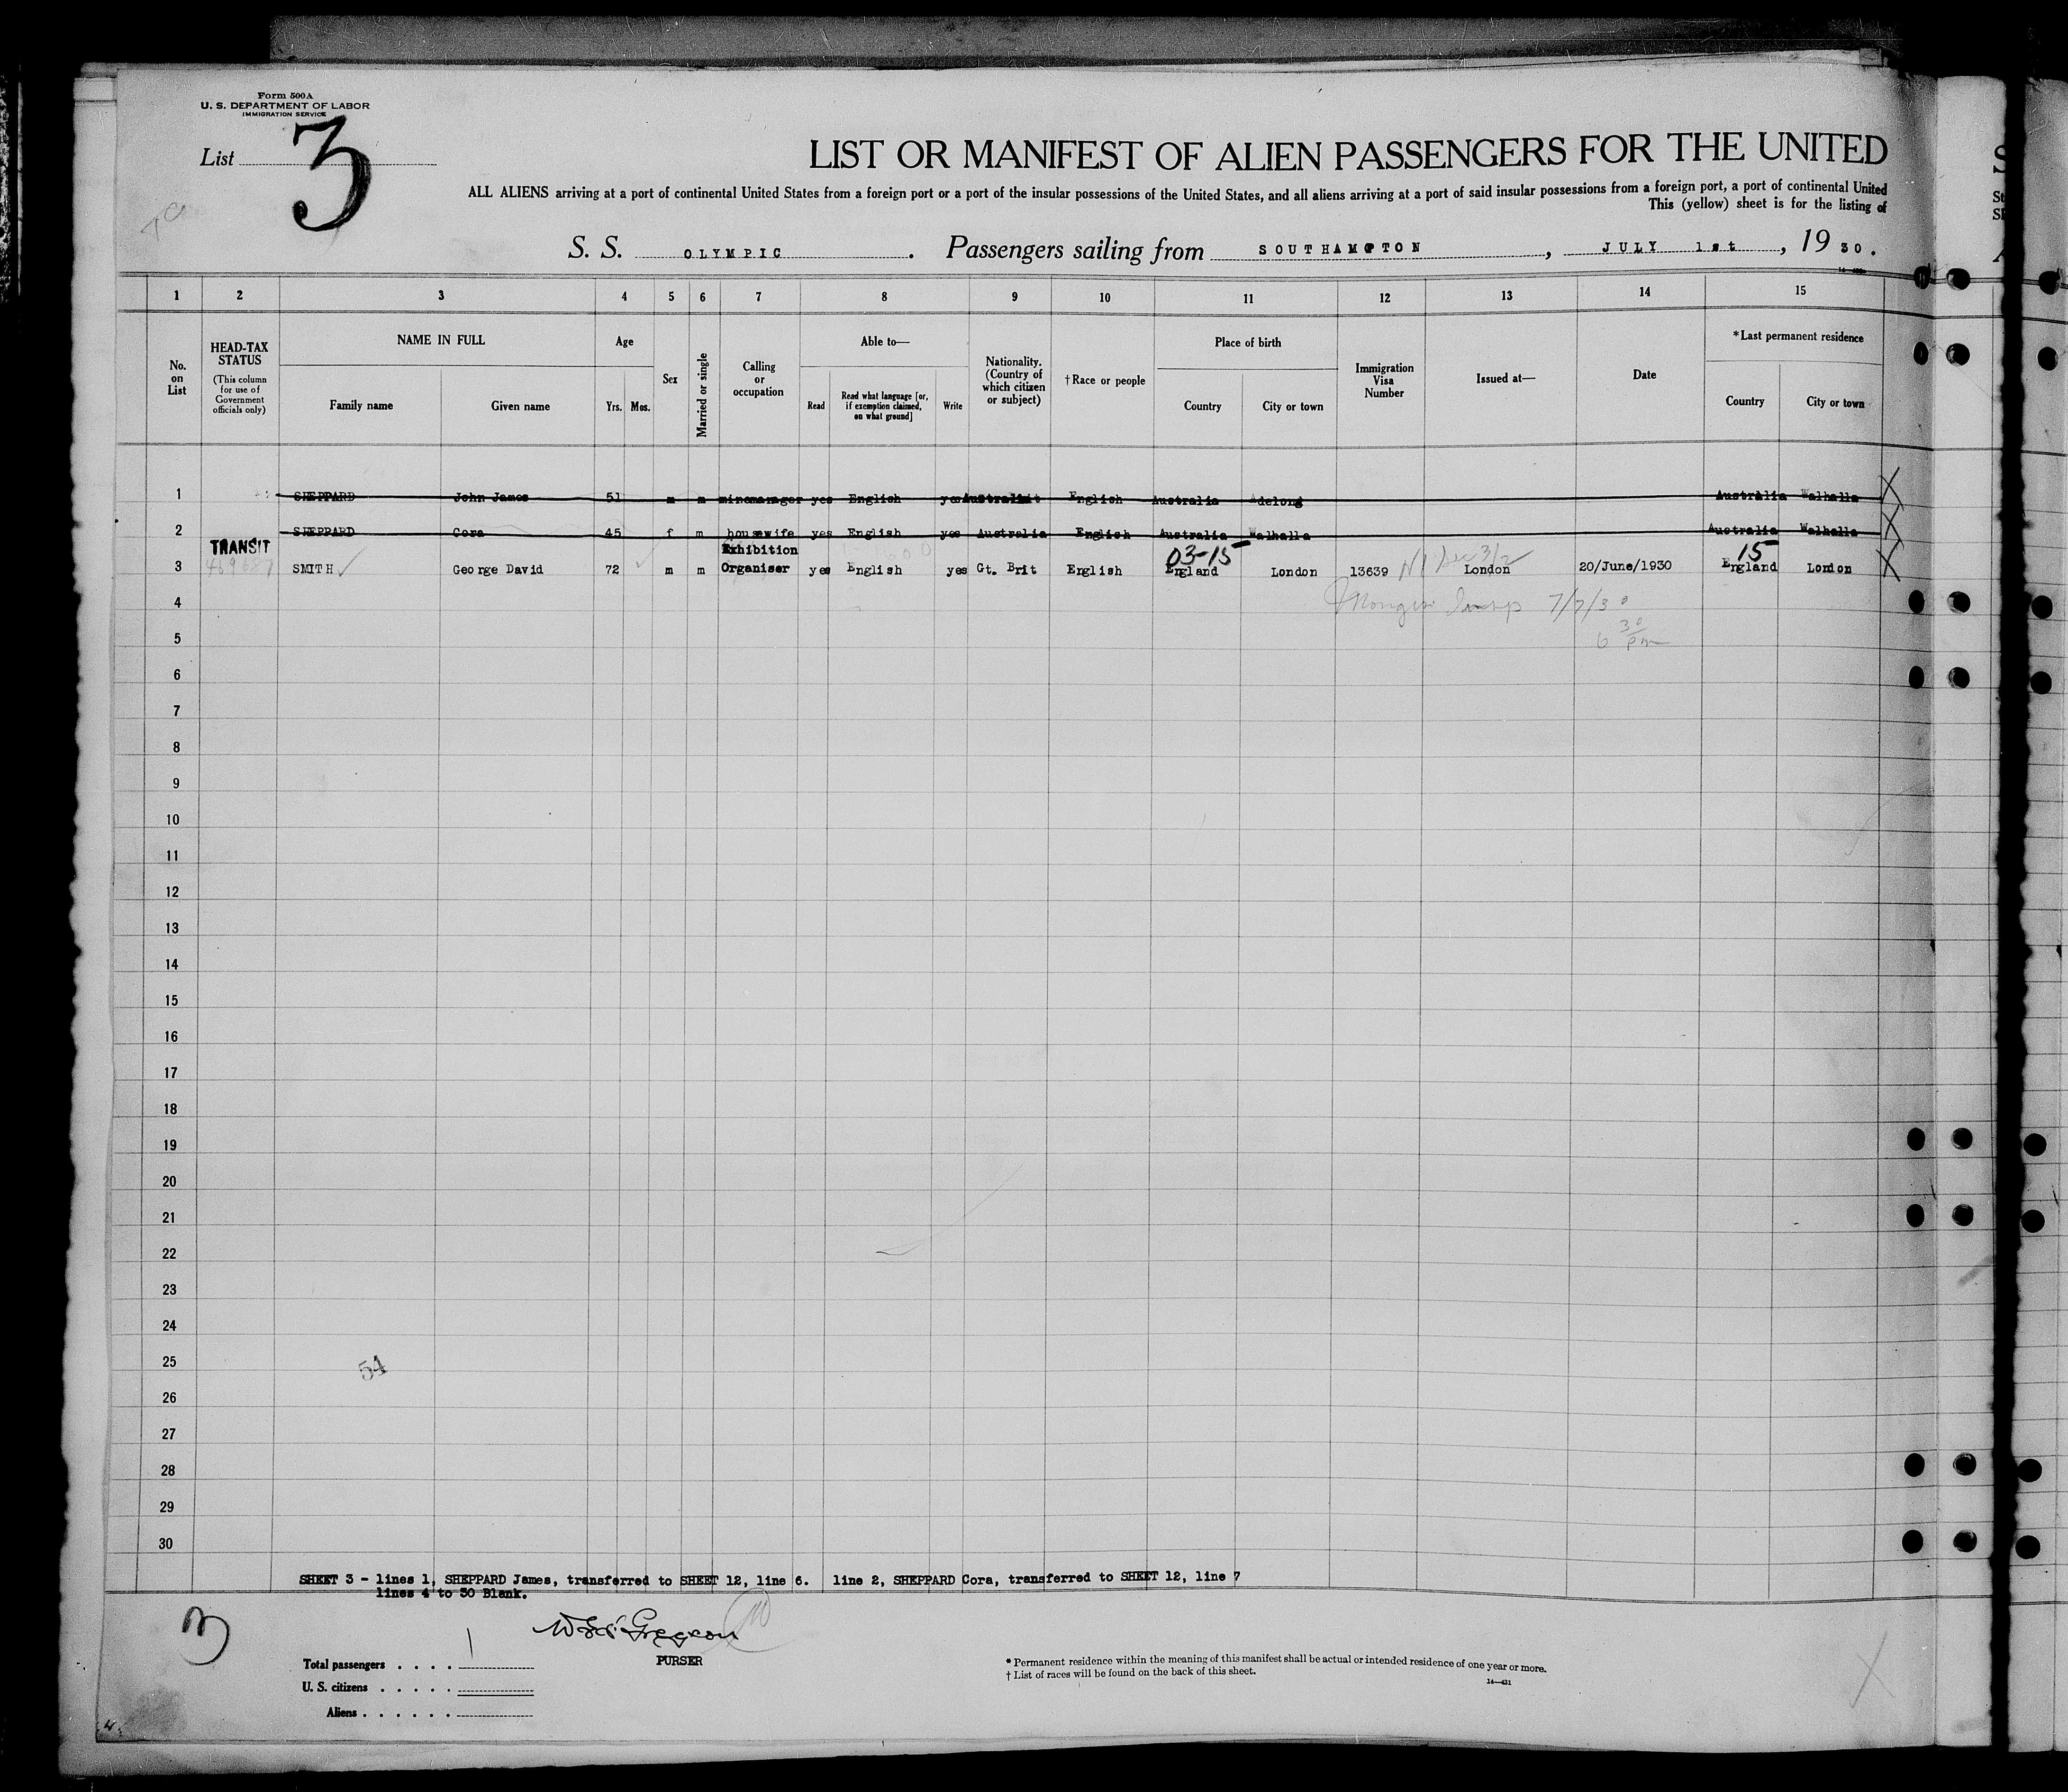 Form 500A
U. S. DEPARTMENT OF LABOR
IMMIGRATION SERVICE
List 3
LIST OR MANIFEST OF ALIEN PASSENGERS FOR THE UNITED
ALL ALIENS arriving at a port of continental United States from a foreign port or a port of the insular possessions of the United States, and all aliens arriving at a port of said insular possessions from a foreign port, a port of continental United
This (yellow) sheet is for the listing of
S. S. OLYMPIC. Passengers sailing from SOUTHAMPTON, JULY 1st, 1930.
1 2 3 4 5 6 7 8 9 10 11 12 13 14 15
No. on List
HEAD-TAX STATUS
(This column for use of Government officials only)
NAME IN FULL
Family name
Given name
Age
Yrs. Mos.
Sex
Married or single
Calling or occupation
Able to—
Read
Read what language [or, if exemption claimed, on what ground]
Write
Nationality. (Country of which citizen or subject)
†Race or people
Place of birth
Country
City or town
Immigration Visa Number
Issued at—
Date
*Last permanent residence
Country
City or town
1 SHEPPARD John James 51 m m minemanager yes English yes English Australia Adelong Australia Walhalla X
2 SHEPPARD Cora 45 f m housewife yes English yes Australia English Australia Walhalla Australia Walhalla X
TRANSIT Exhibition 03-15 15
3 SMITH George David 72 m m Organiser yes English yes Gt. Brit English England London 13639 London 20/June/1930 England London X
4 7/7/30
5 6 30 pm
6
7
8
9
10
11
12
13
14
15
16
17
18
19
20
21
22
23
24
25 54
26
27
28
29
30
SHEET 3 - lines 1, SHEPPARD James, transferred to SHEET 12, line 6. line 2, SHEPPARD Cora, transferred to SHEET 12, line 7
lines 4 to 30 Blank.
3
PURSER
Total passengers . . . . 1
U. S. citizens . . . . .
Aliens . . . . . .
* Permanent residence within the meaning of this manifest shall be actual or intended residence of one year or more.
† List of races will be found on the back of this sheet.
14—421